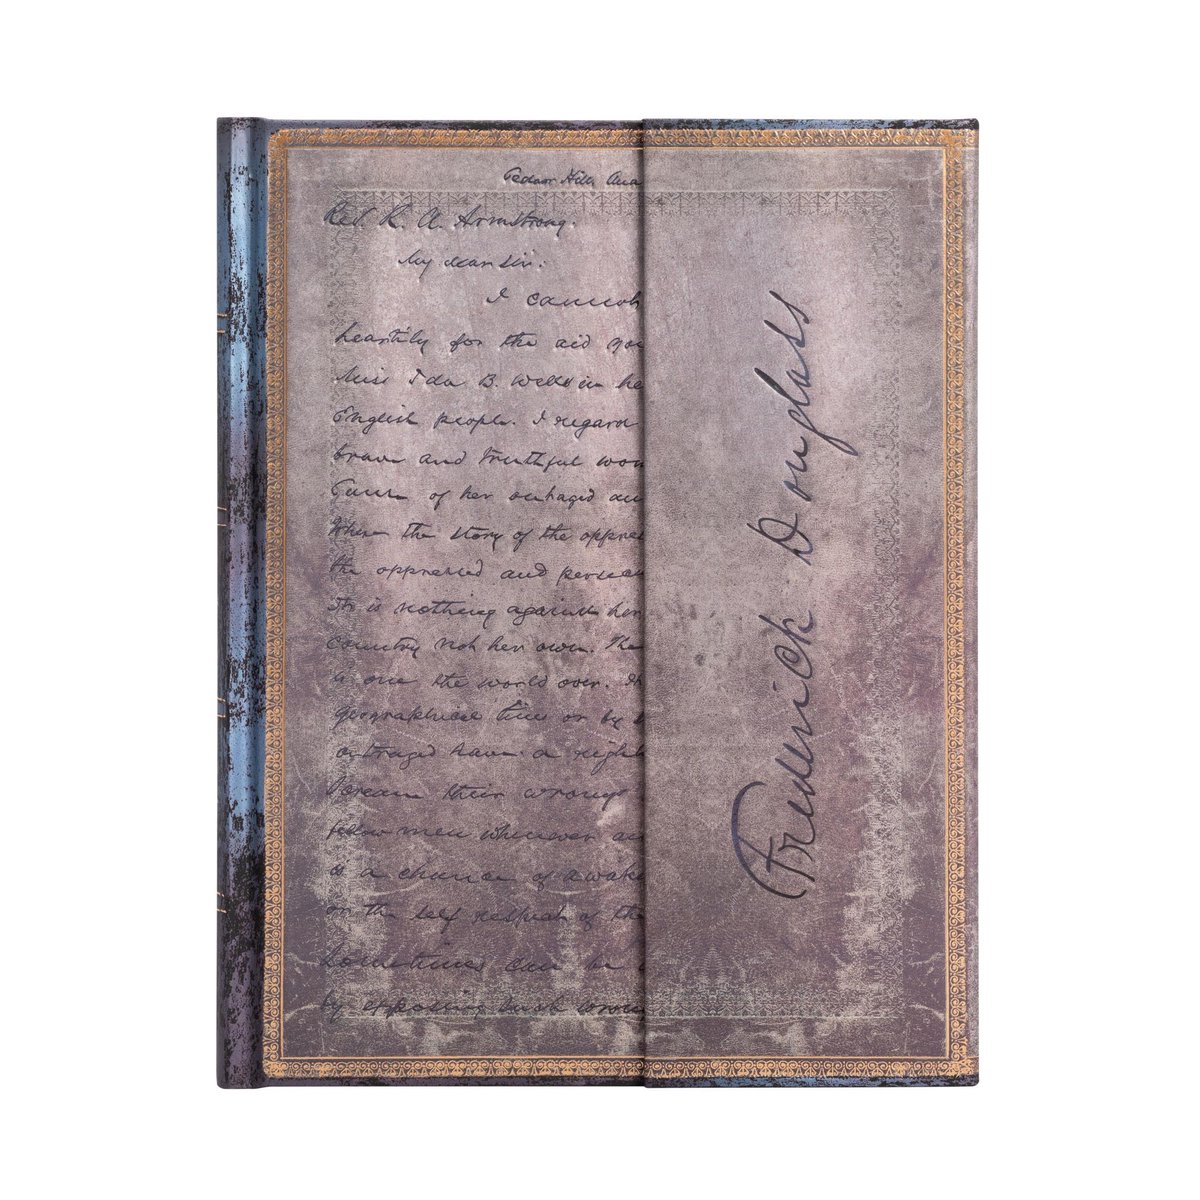 Cedar Hill, Ana
Rev. R. A. Armstrong.
My dear Sir:
I cannot
heartily for the aid you
Miss Ida B. Wells in he
English people. I regard
brave and truthful wom
Cause of her outraged an
Where the story of the oppres
the oppressed and persecu
It is nothing against her
country not her own. The
is one the world over.
geographical lines or by
outraged have a right
scream their wrongs
fellow men whenever an
is a chance of awake
on the self respect of the
sometimes can be
by exposing such wron
Frederick Douglass